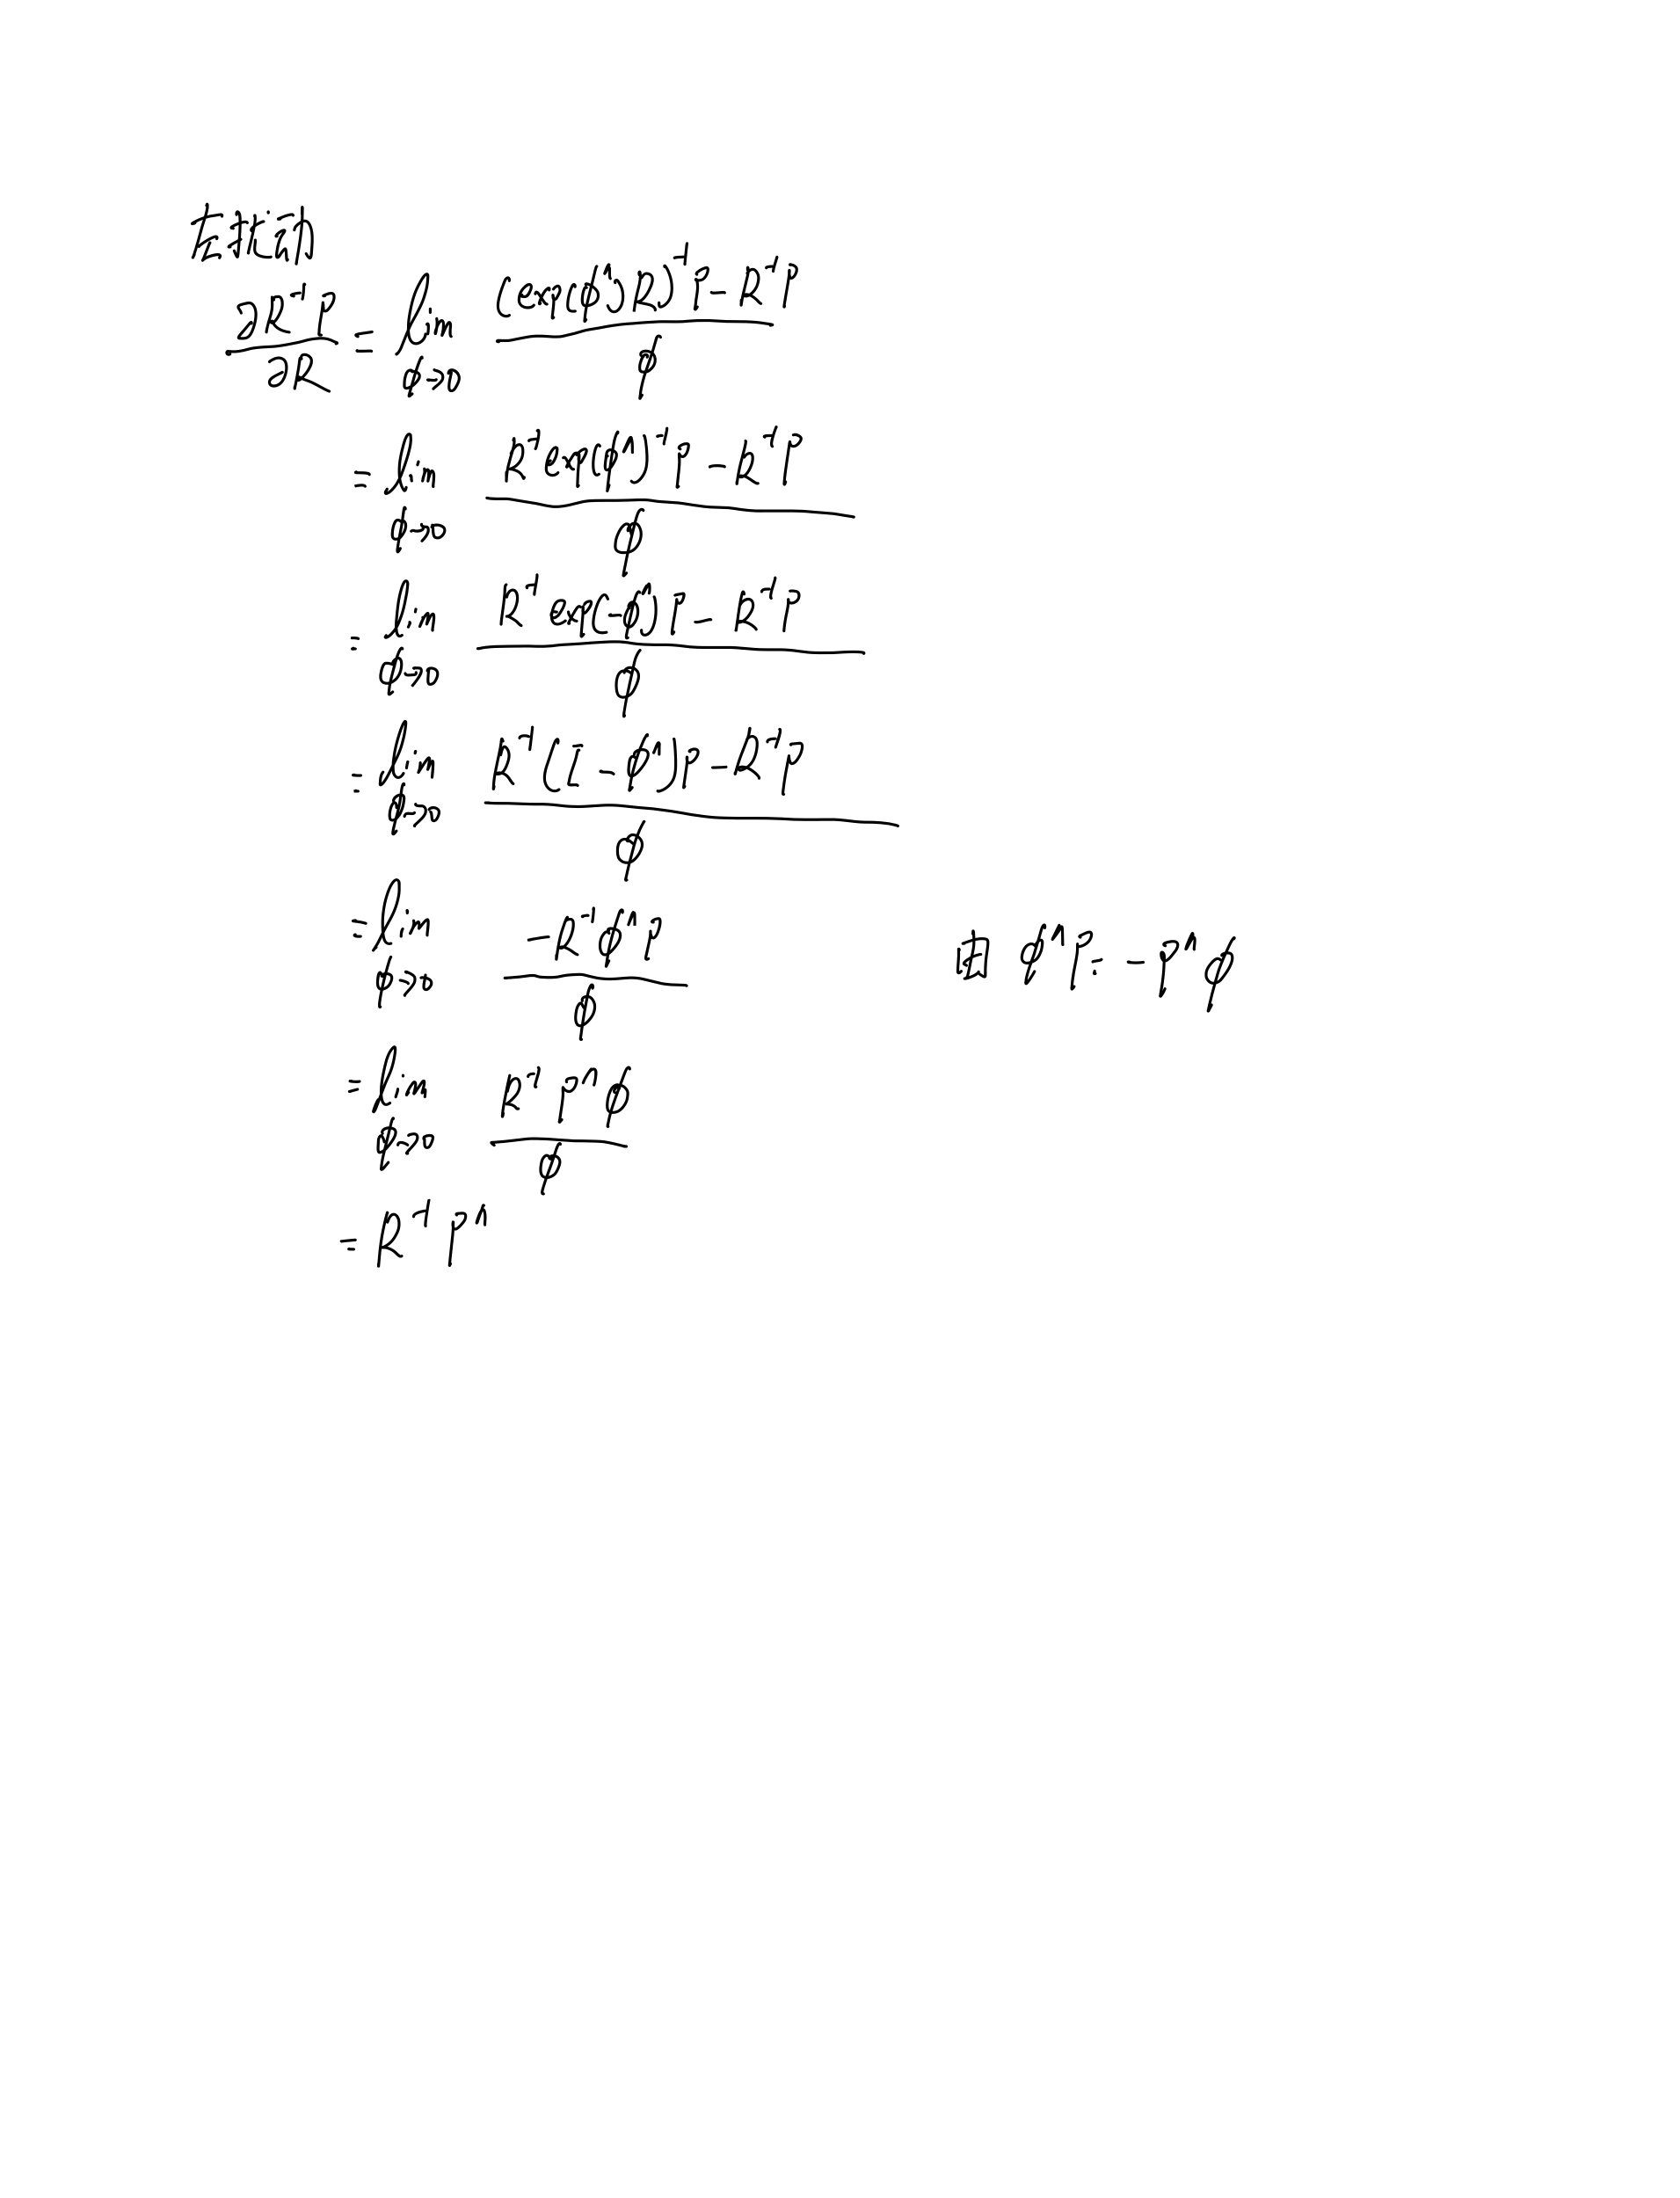 左扰动
∂R⁻¹P / ∂R = lim φ→0 ((exp(φ^)R)⁻¹P − R⁻¹P) / φ
= lim φ→0 (R⁻¹exp(φ^)⁻¹P − R⁻¹P) / φ
= lim φ→0 (R⁻¹exp(−φ^)P − R⁻¹P) / φ
= lim φ→0 (R⁻¹(I − φ^)P − R⁻¹P) / φ
= lim φ→0 −R⁻¹φ^P / φ 由 φ^P = −P^φ
= lim φ→0 R⁻¹P^φ / φ
= R⁻¹P^